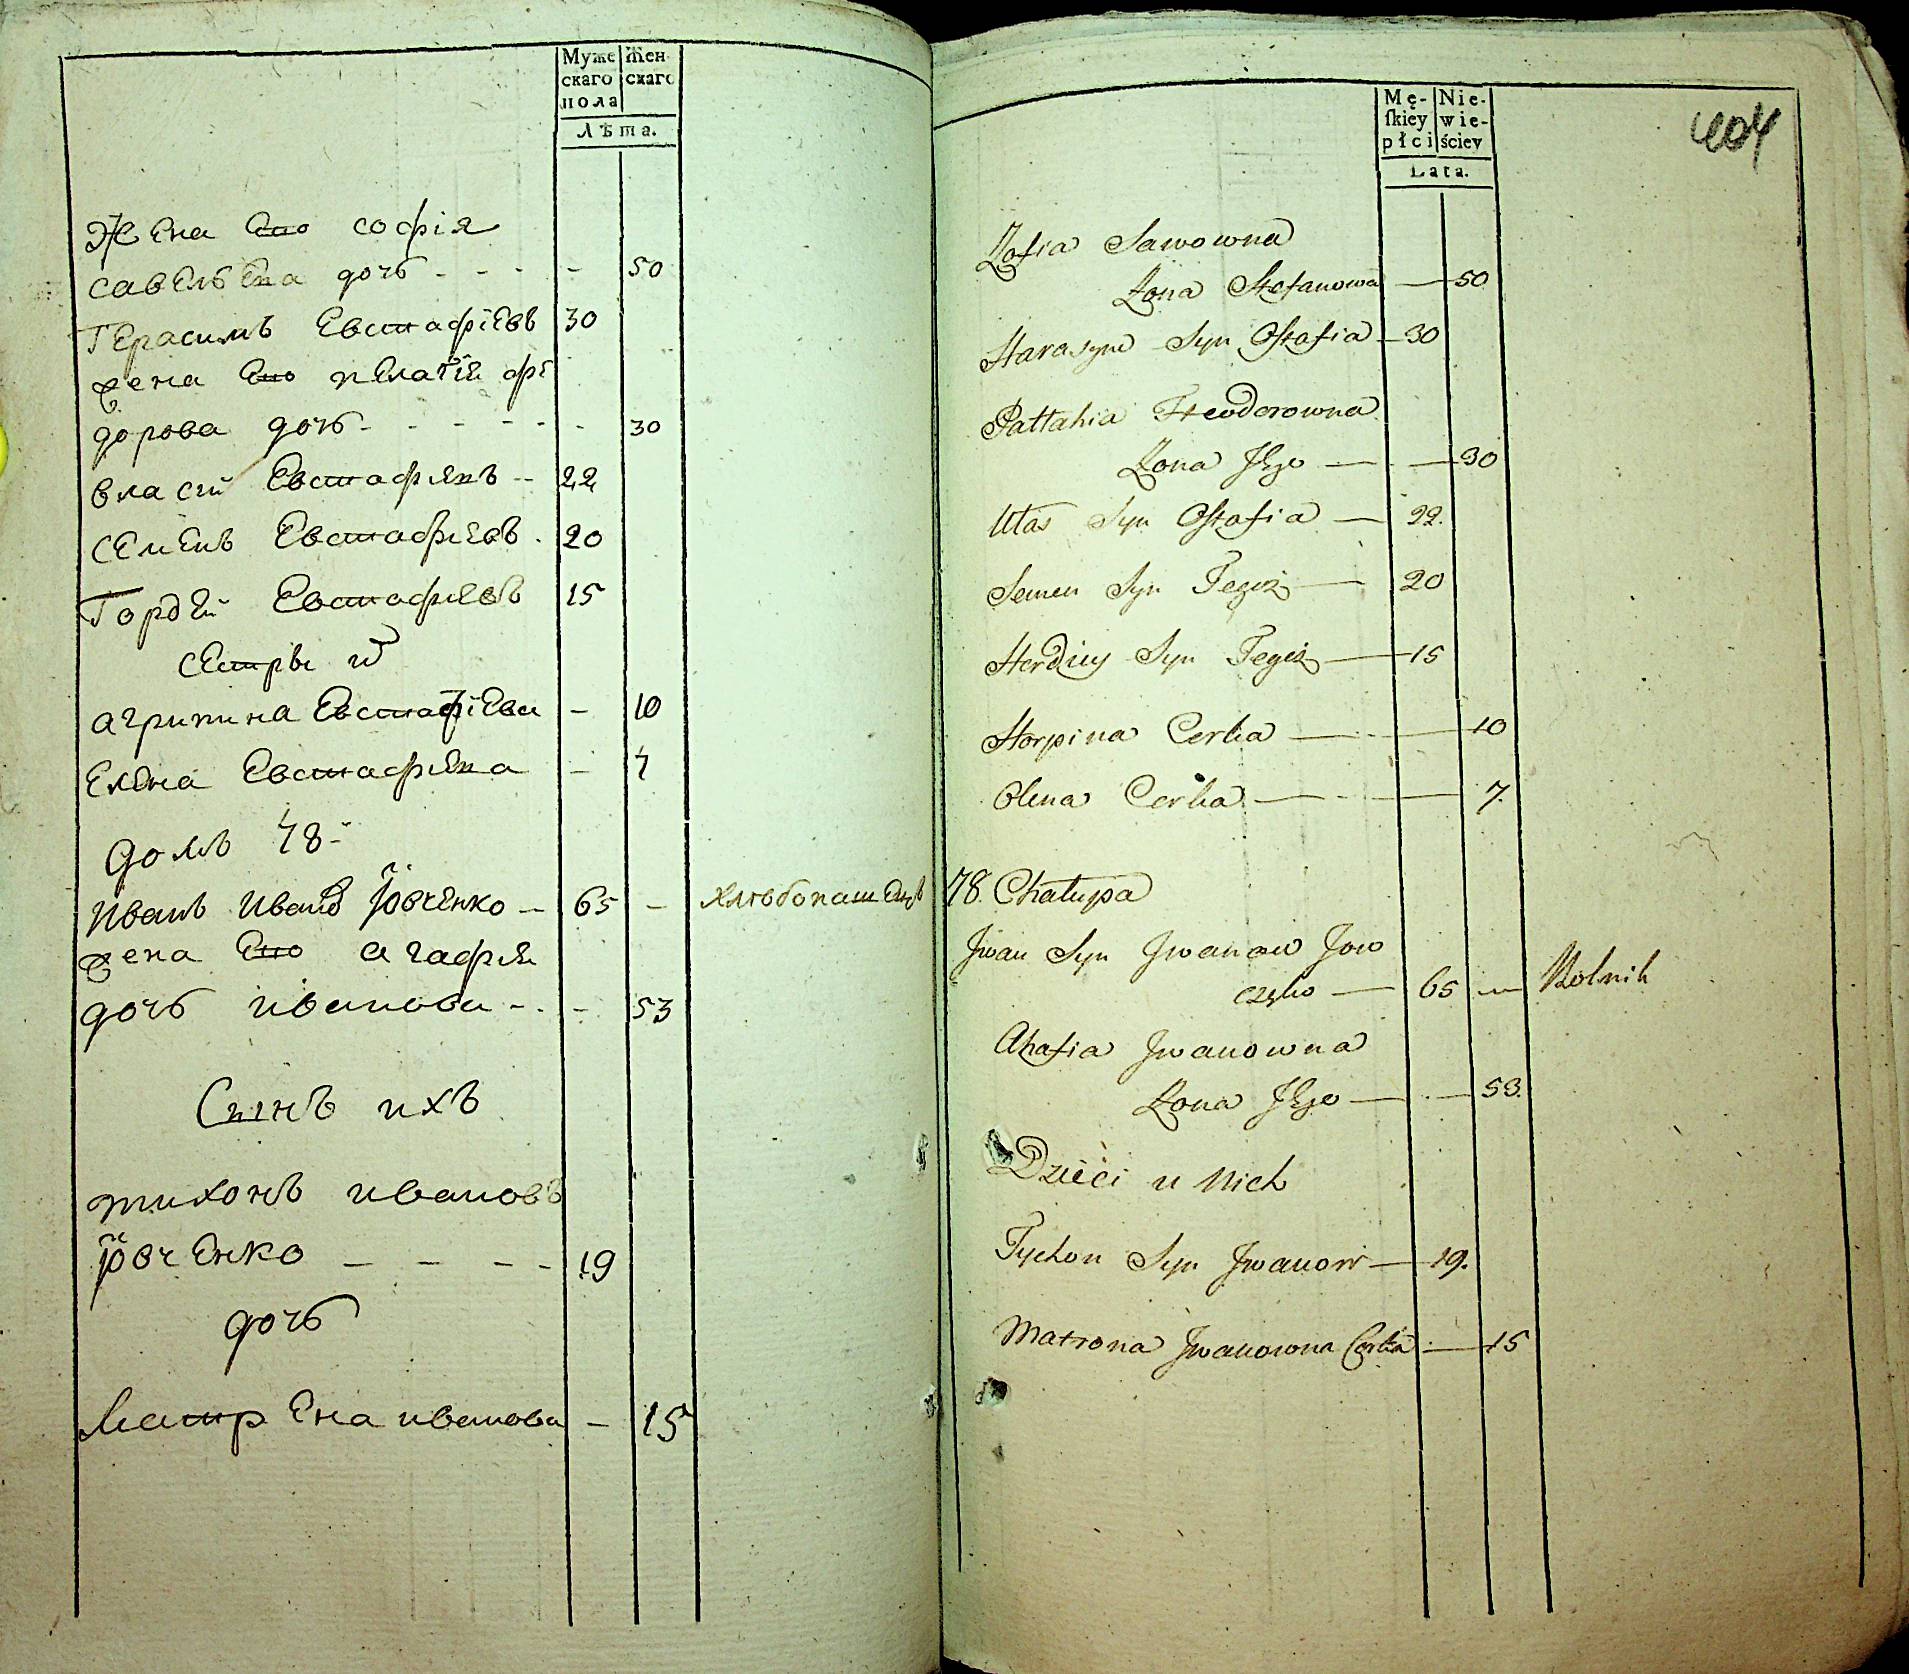 Муже Жен
скаго скаго
пола
Лѣта.
Жена Его софія
савельева дочь - - - - 50
Герасимъ Евстафіевъ 30
жена Его пелагія фе
дорова дочь - - - - - - 30
власій Евстафиевъ -- 22
Семенъ Евстафиевъ . 20
Гордей Евстафиевъ 15
Сестры и
агрипина Евстафіева - 10
Елена Евстафиева - 7
домъ 78
Иванъ Иванов Йовченко - 65 - хлѣбопашецъ
жена Его агафия
дочь иванова - - - 53
Сынъ ихъ
тихонъ ивановъ
Йовченко - - - - 19
дочь
Матрена иванова - 15
Mę- Nie-
ſkiey wie-
płci ściey
Lata.
404
Zofia Sawowna
Żona Stefanowa — 50
Harasym Syn Ostafia — 30
Pallahia Fteodorowna
Żona Jego — — 30
Ułas Syn Ostafia — 22.
Semen Syn Tegoż — 20
Herdiey Syn Tegoż — 15
Horpina Corka — — 10
Olena Corka — — 7.
78. Chałupa
Jwan Syn Jwanow Jow
częko — 65 — Rolnik
Ahafia Jwanowna
Żona Jego — — 53.
Dzieci u Nich
Tychon Syn Jwanow — 19.
Matrona Jwanowna Corka — 15